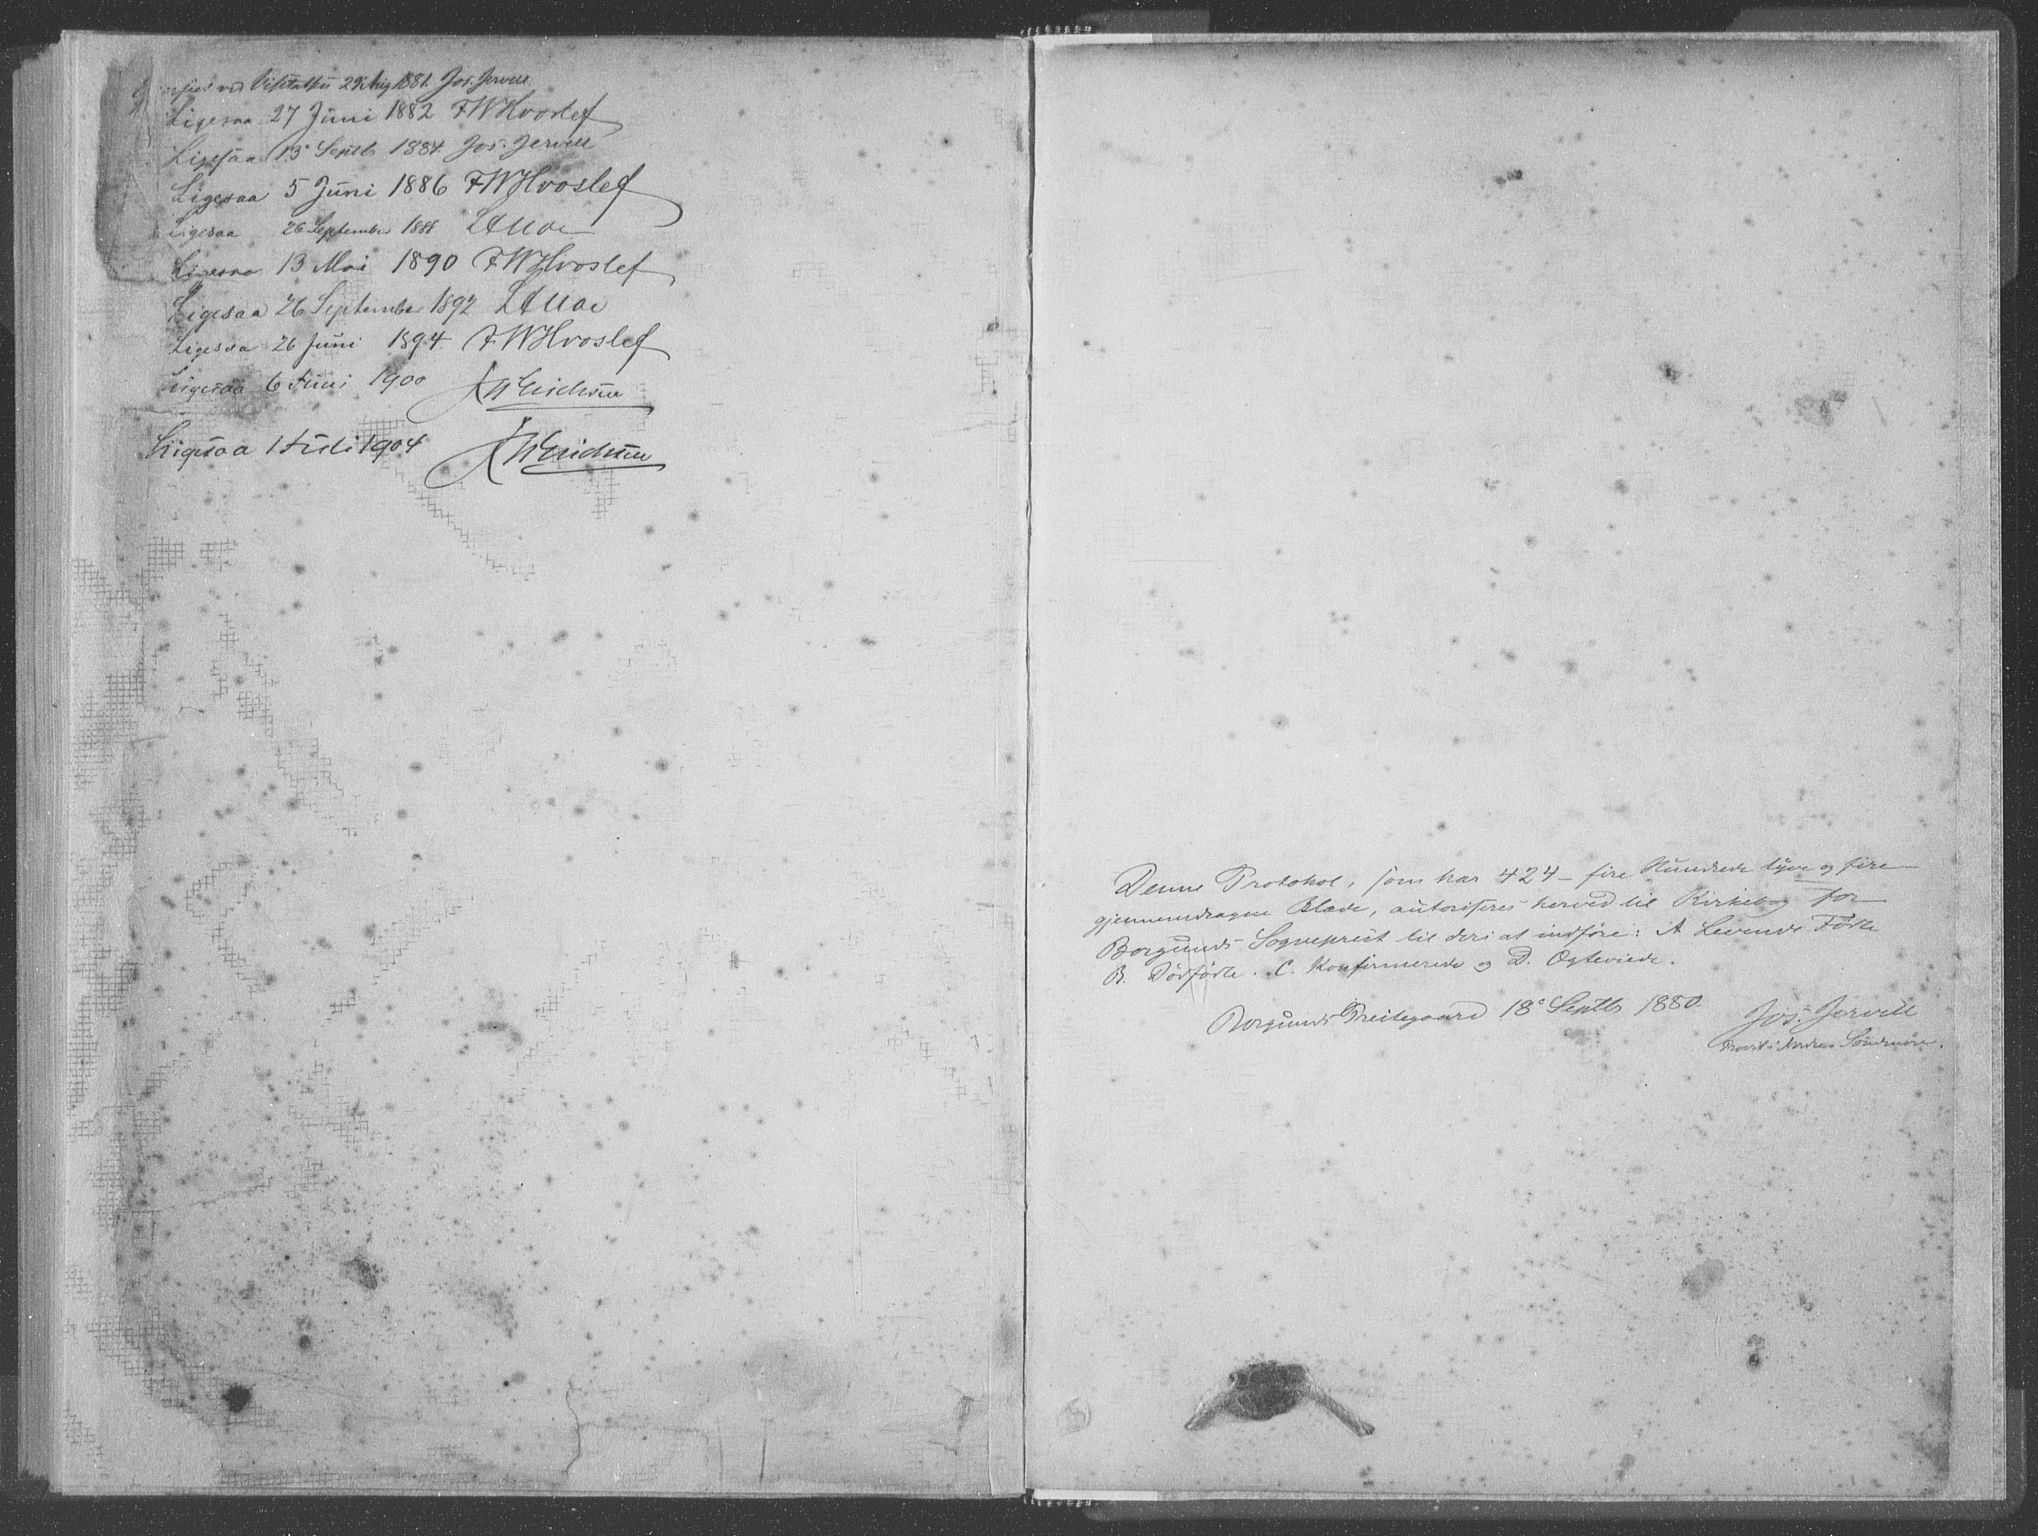 ved Visitatsen 29 Aug 1881. Jos. Jervell
Ligesaa 27 Juni 1882 FWHvoslef
Ligesaa 13de Septb 1884. Jos. Jervell
Ligesaa 5 Juni 1886 FWHvoslef
Ligesaa 26 September 1888
Ligesaa 13 Mai 1890 FWHvoslef
Ligesaa 26 September 1892
Ligesaa 26 Juni 1894. FWHvoslef
Ligesaa 6 Juni 1900
Ligesaa 1 Juli 1904
Denne Protokol, som har 424 - fire Hundrede tyve og fire -
gjennemdragne Blade, autoriseres herved til Kirkebog for
Borgunds Sogneprest til deri at indføre: A Levende Fødte
B. Dødfødte. C. Konfirmerede og D. Ægteviede.
Borgunds Prestegaard 18de Septb 1880.
Jos. Jervell
Provst i Nordre Søndmøre.